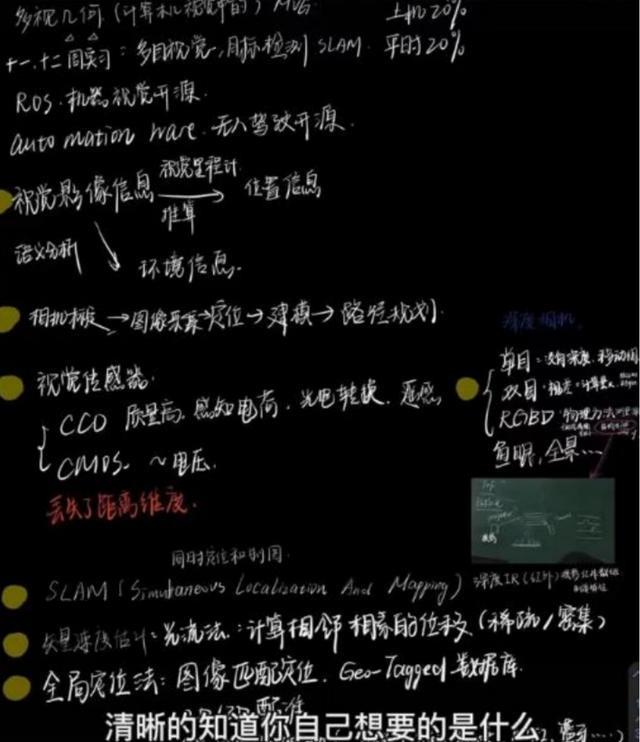 多视几何(计算机视觉中的) MVG 上机20%
十一.十二周实习:多目视觉,目标检测 SLAM. 平时20%
ROS.机器视觉开源.
automation ware.无人驾驶开源.
视觉影像信息 视觉里程计 推算 位置信息
语义分析
环境信息.
相机标定→图像采集→定位→建模→路径规划.
深度相机.
单目:没有深度.移动
双目:视差:计算量大
RGBD 物理方法
鱼眼,全景…
视觉传感器.
CCD 质量高.感知电荷.光电转换.遥感
CMOS. ~电压.
丢失了距离维度.
同时定位和制图.
SLAM(Simultaneous Localization And Mapping)
深度IR(红外)
矢量速度估计:光流法:计算相邻相素的位移(稀疏/密集)
全局定位法:图像匹配定位. Geo-Tagged数据库.
清晰的知道你自己想要的是什么